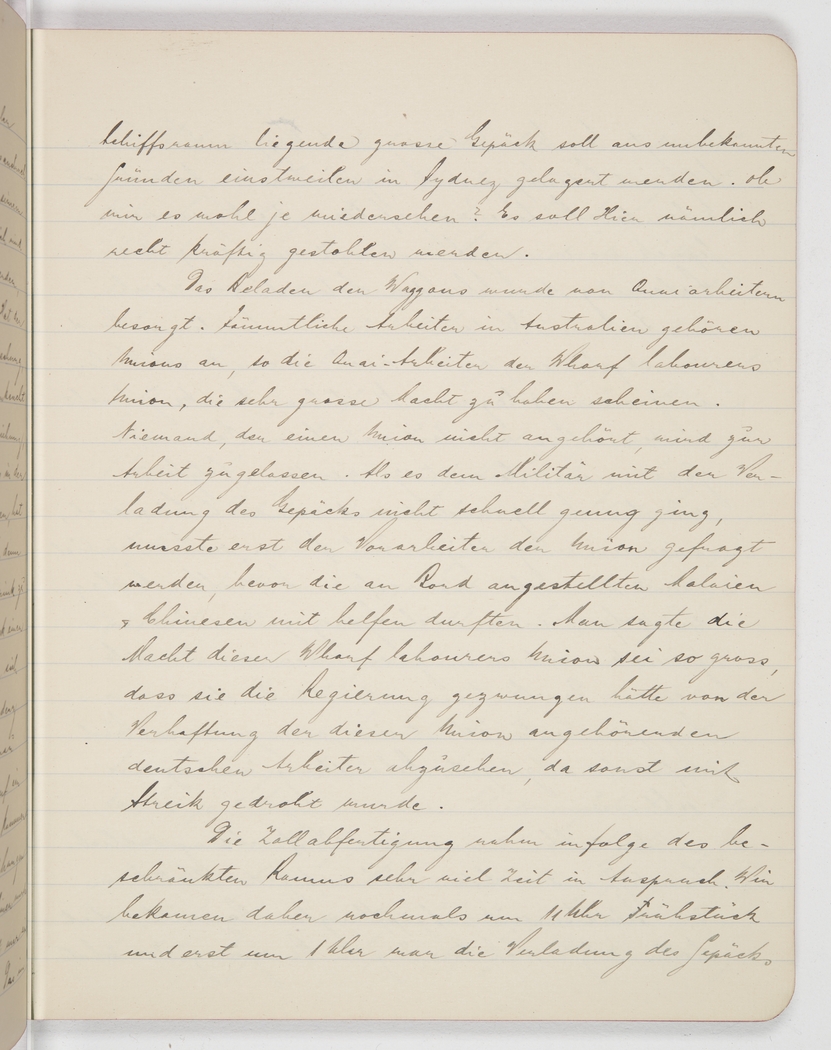 Schiffsraum liegende grosse Gepäck soll aus unbekannten
Gründen einstweilen in Sydney gelagert werden. Ob
wir es wohl je wiedersehen? Es soll Hier nämlich
recht kräftig gestohlen werden.
Das Beladen der Waggons wurde von Quaiarbeitern
besorgt. Sämmtliche Arbeiter in Australien gehören
Unions an, so die Quai-Arbeiter der Wharf labourers
Union, die sehr grosse Macht zu haben scheinen.
Niemand, der einen Union nicht angehört, wird zur
Arbeit zugelassen. Als es dem Militär mit der Ver-
ladung des Gepäcks nicht schnell genug ging,
musste erst der Vorarbeiter der Union gefragt
werden, bevor die an Bord angestellten Malaien
& Chinesen mit helfen durften. Man sagte die
Macht dieser Wharf labourers Union sei so gross,
dass sie die Regierung gezwungen hätte von der
Verhaftung der dieser Union angehörenden
deutschen Arbeiter abzusehen, da sonst mit
Streik gedroht wurde.
Die Zollabfertigung nahm infolge des be-
schränkten Raums sehr viel Zeit in Anspruch. Wir
bekamen daher nochmals um 11 Uhr Frühstück
und erst um 1 Uhr war die Verladung des Gepäcks